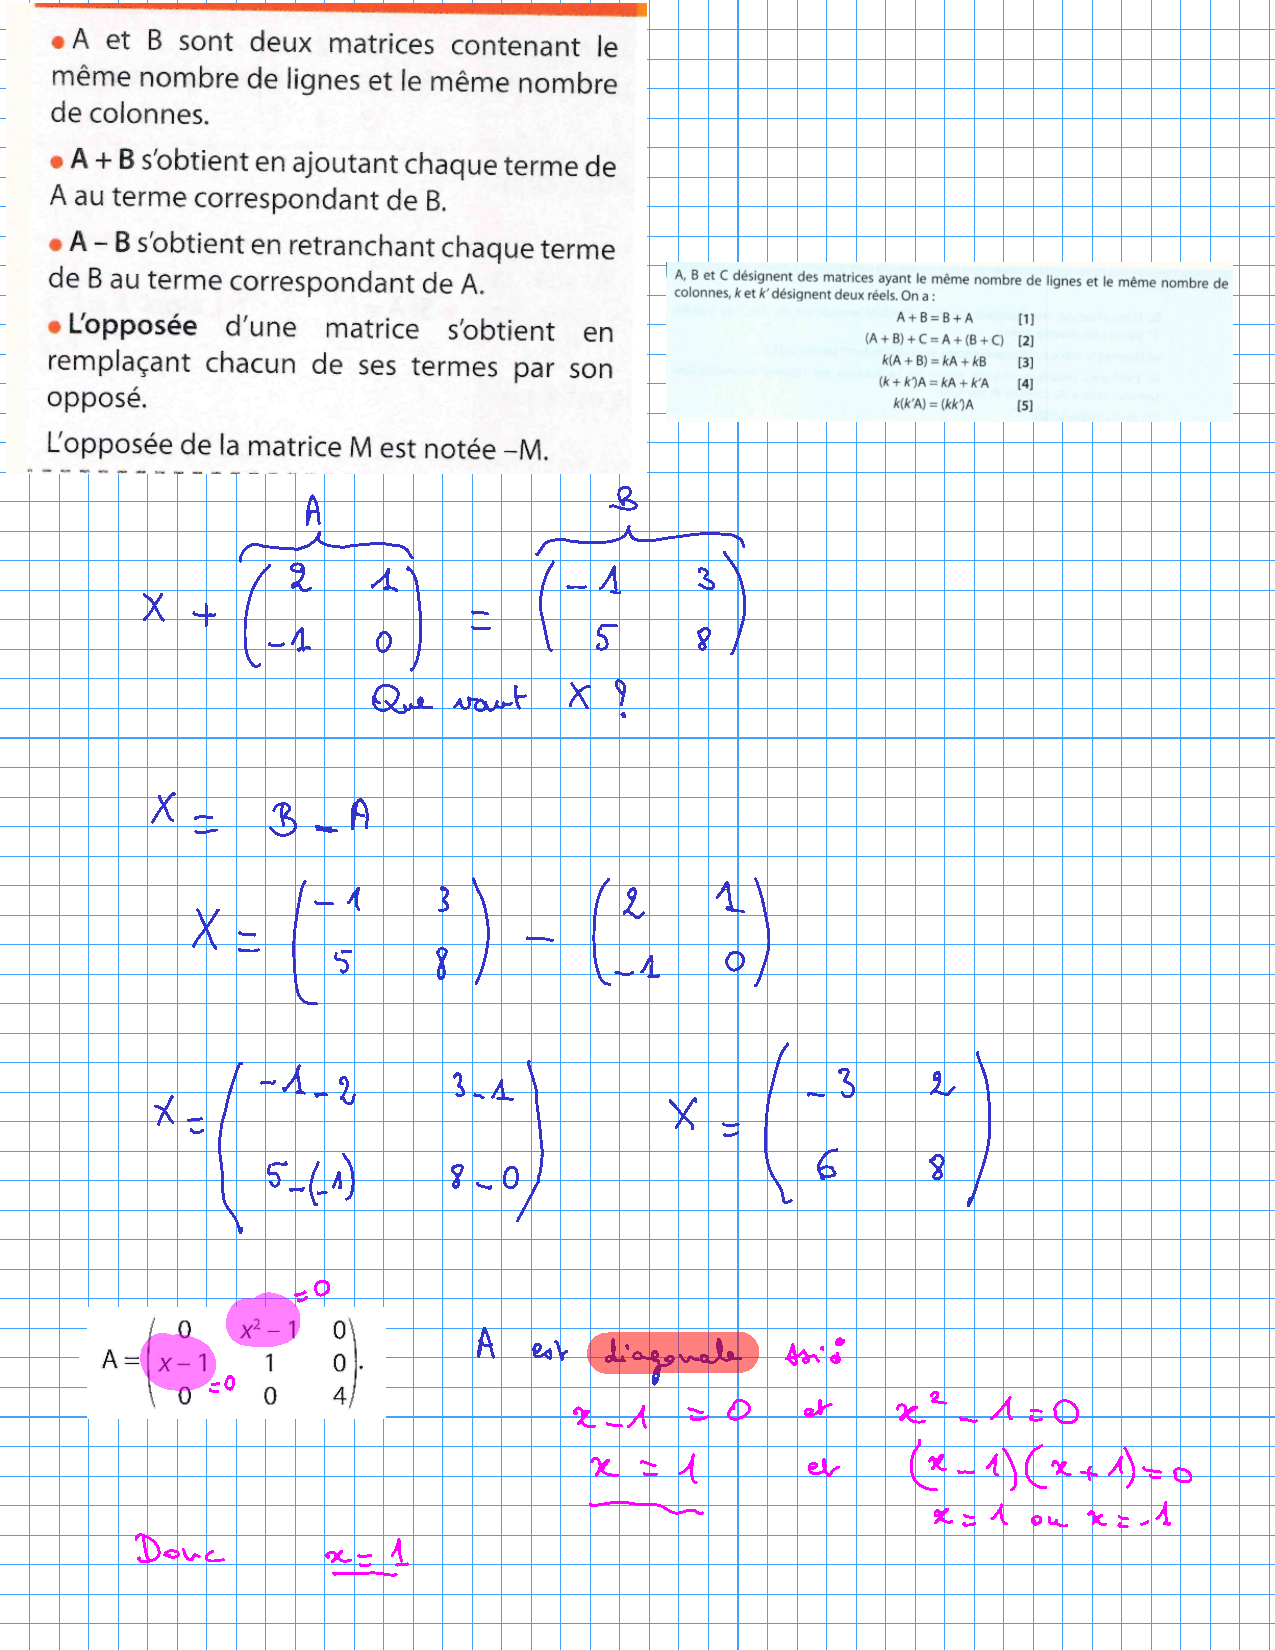 • A et B sont deux matrices contenant le
même nombre de lignes et le même nombre
de colonnes.
• A + B s'obtient en ajoutant chaque terme de
A au terme correspondant de B.
• A – B s'obtient en retranchant chaque terme
de B au terme correspondant de A.
• L'opposée d'une matrice s'obtient en
remplaçant chacun de ses termes par son
opposé.
L'opposée de la matrice M est notée –M.
A, B et C désignent des matrices ayant le même nombre de lignes et le même nombre de
colonnes, k et k' désignent deux réels. On a :
A + B = B + A [1]
(A + B) + C = A + (B + C) [2]
k(A + B) = kA + kB [3]
(k + k')A = kA + k'A [4]
k(k'A) = (kk')A [5]
A B
X + ( 2 1 ) = ( -1 3 )
( -1 0 ) ( 5 8 )
Que vaut X ?
X = B - A
X = ( -1 3 ) - ( 2 1 )
( 5 8 ) ( -1 0 )
X = ( -1-2 3-1 ) X = ( -3 2 )
( 5-(-1) 8-0 ) ( 6 8 )
= 0
A = ( 0 x² – 1 0 )
( x – 1 1 0 ).
= 0
( 0 0 4 )
A est diagonale ssi
x - 1 = 0 et x² - 1 = 0
x = 1 et (x - 1)(x + 1) = 0
x = 1 ou x = -1
Donc x = 1